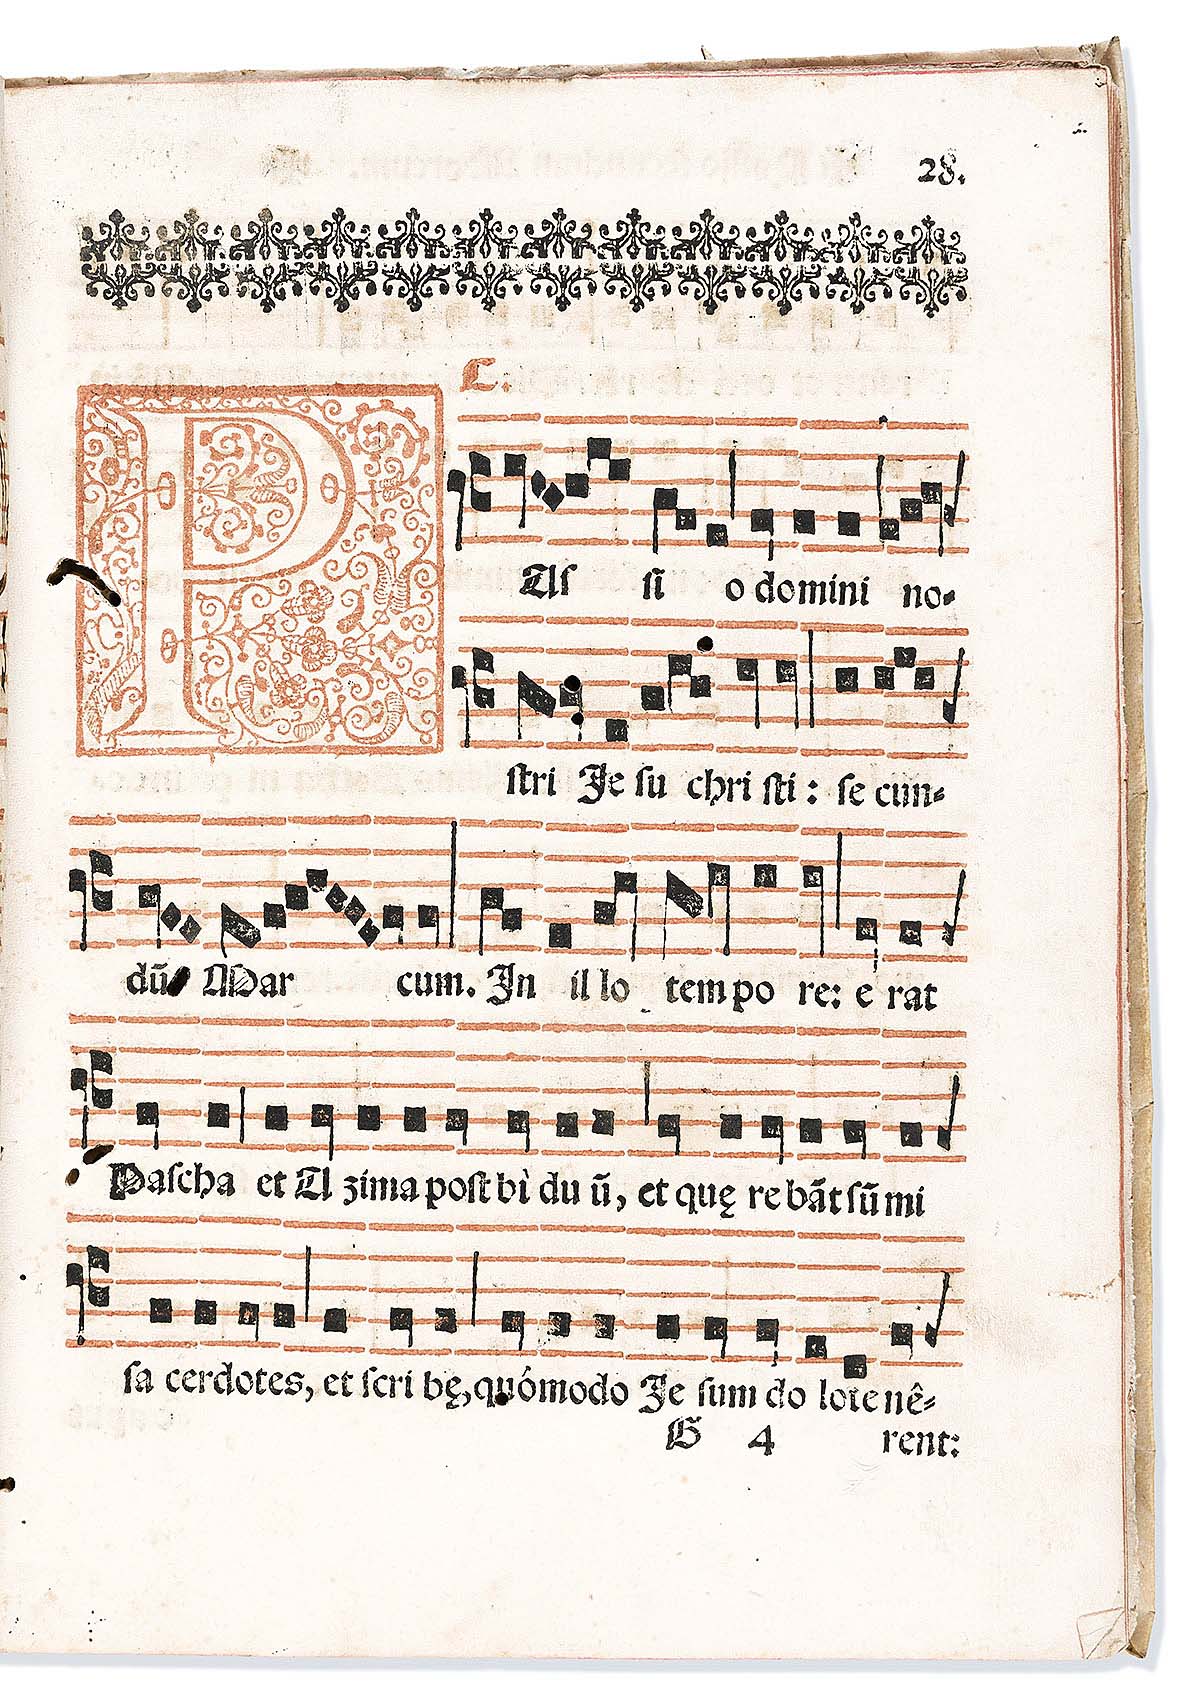 28.
C.
PAſ ſi o domini no-
ſtri Je ſu chri ſti: ſe cun-
dũ Mar cum. In il lo tem po re: e rat
Paſcha et A zima poſt bì du ũ, et quę re bãt ſũ mi
ſa cerdotes, et ſcri bę, quómodo Je ſum do lo te nê-
G 4 rent: